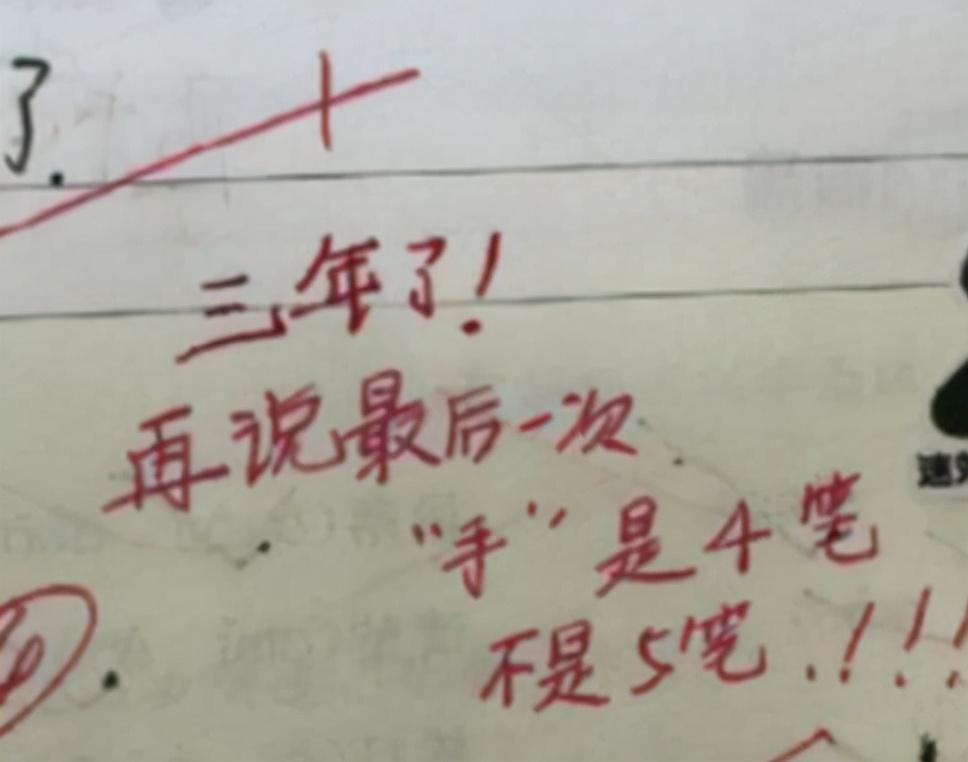 了.
三年了！
再说最后一次
“手”是4笔
不是5笔.！！！